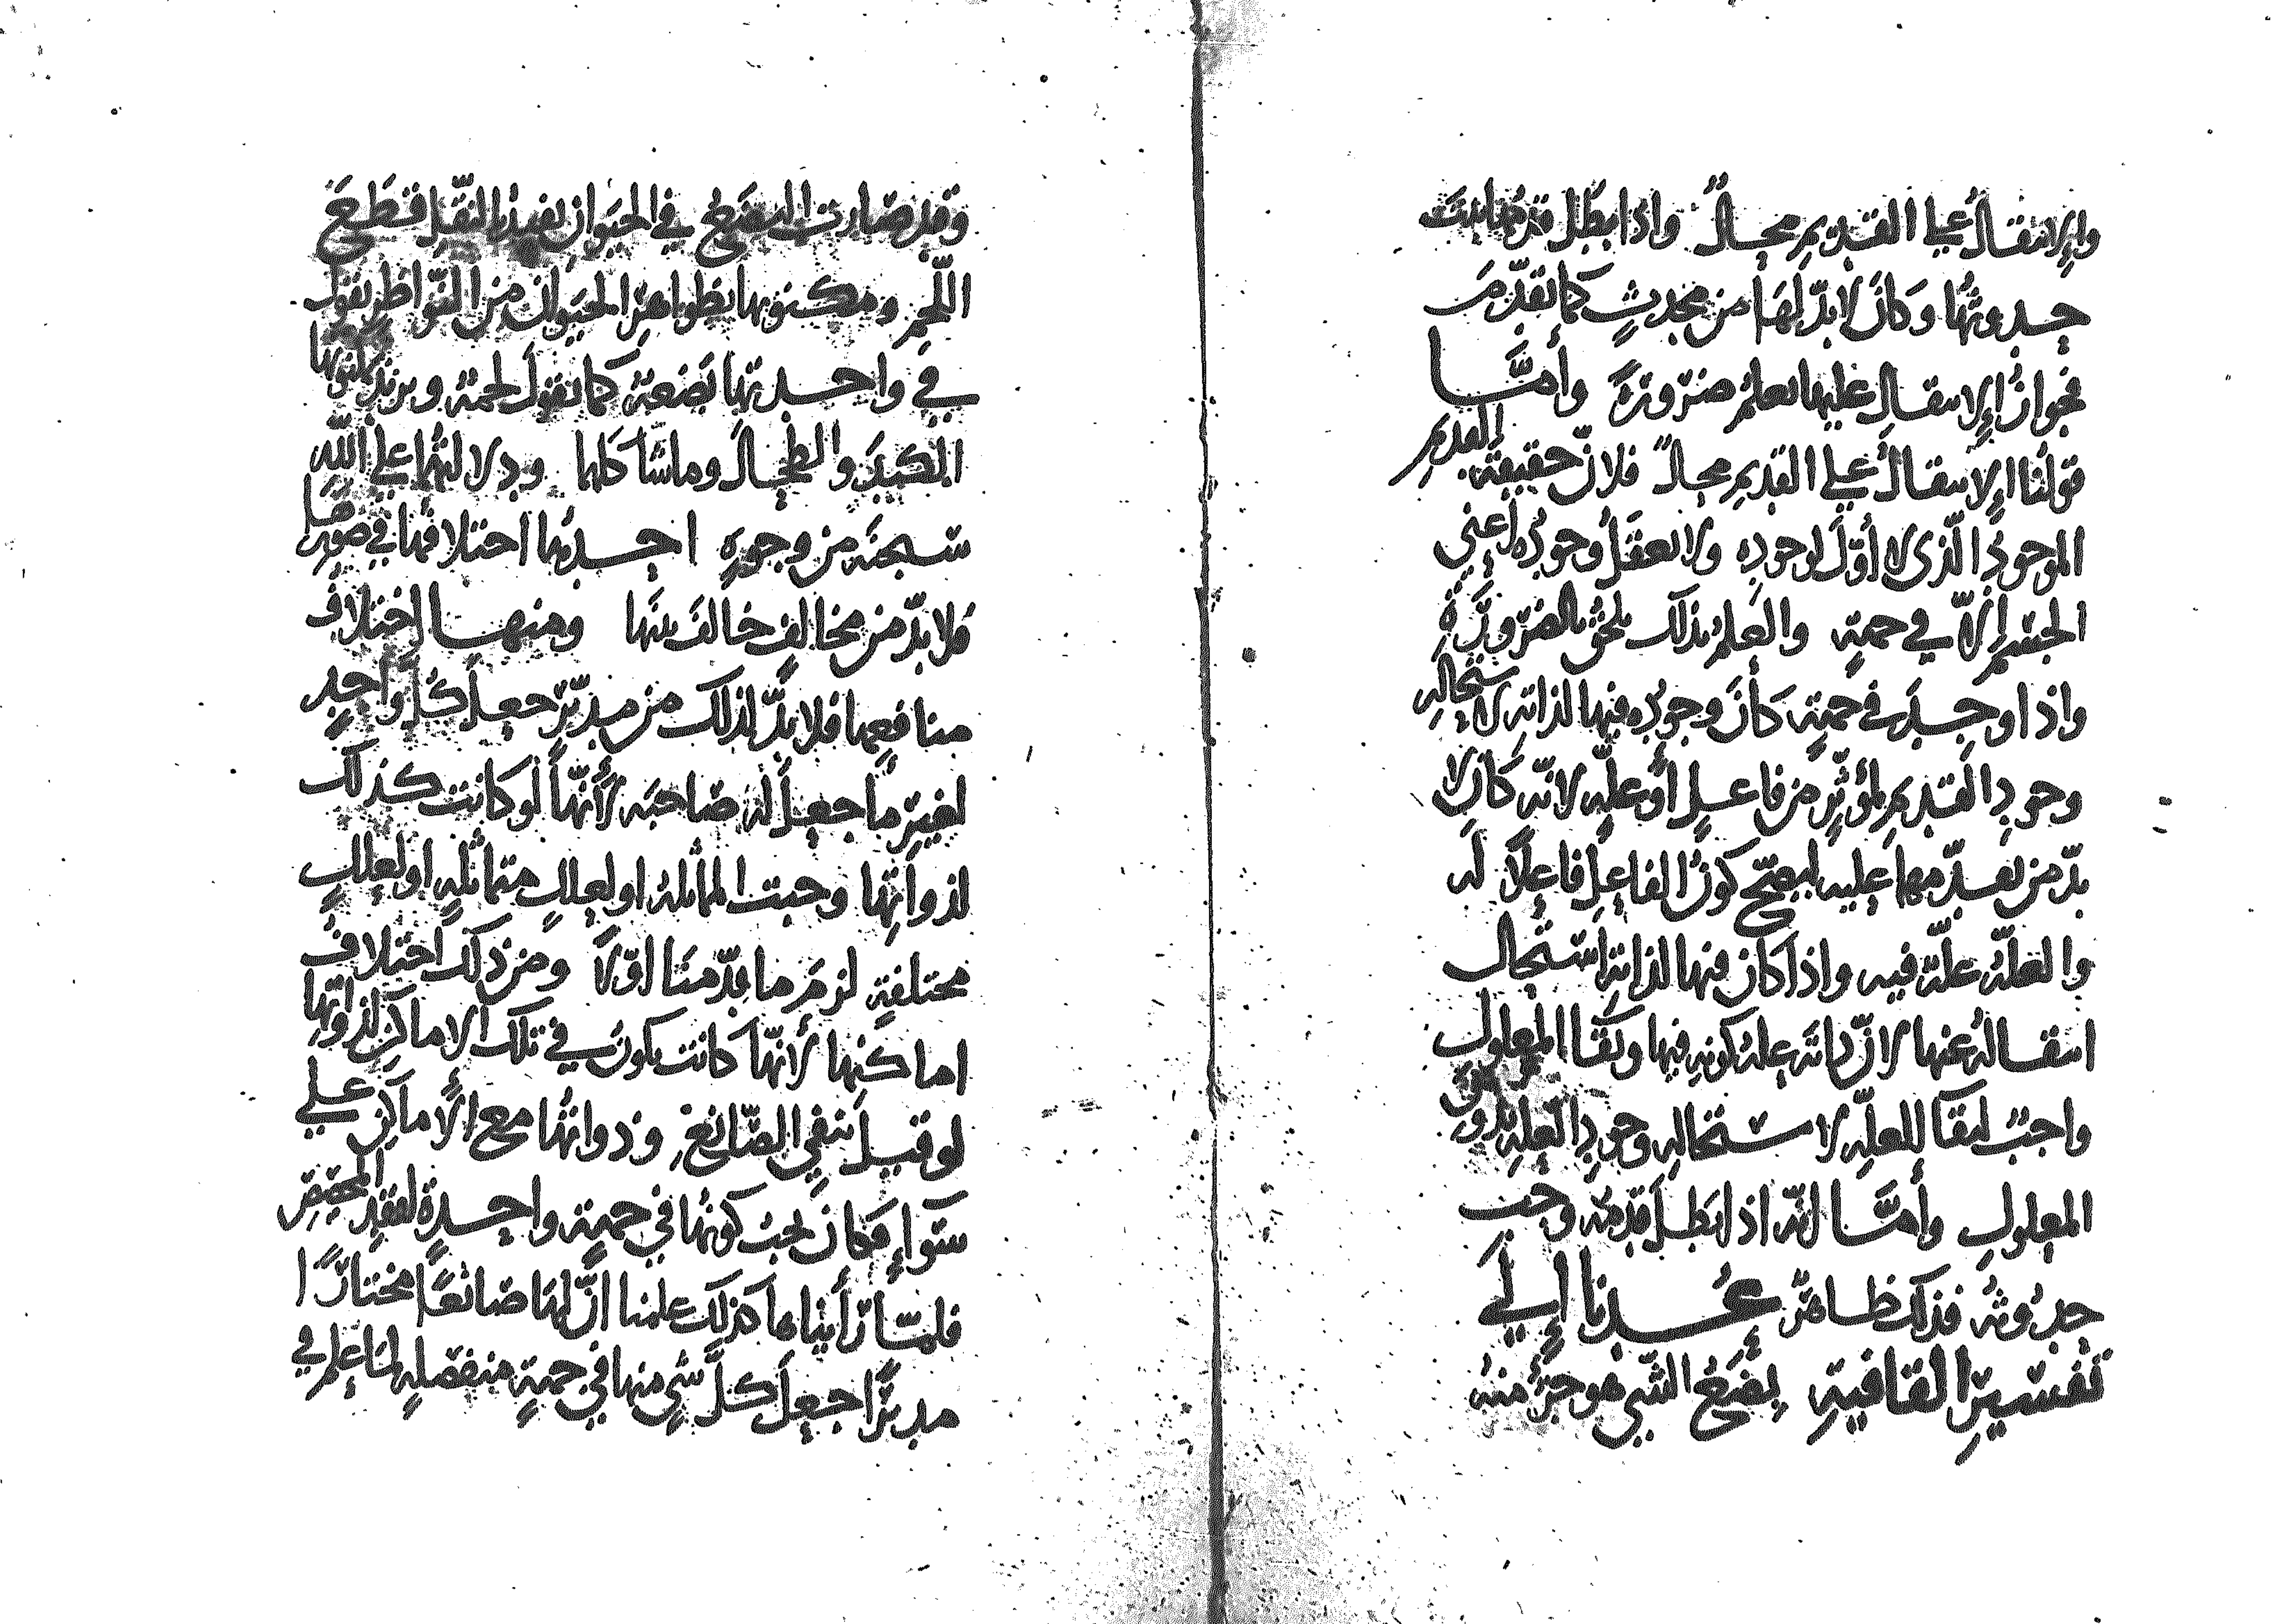 والانتقال على القديم محال واذا بطل قدمها ثبت
حدوثها وكان لا بدّ لها من محدث كما تقدّم
فجواز الانتقال عليها يعلم ضرورة وأمّا
قولنا الانتقال على القديم محال فلانّ حقيقة القديم
الموجود الّذي لا أوّل لوجوده ولا يعقل وجوده اعني
الجسم إلاّ في جهة والعلم بذلك يلحق بالضرورة
واذا وجد في جهة كان وجوده فيها لذاته لاستحالة
وجود القديم لمؤثّر من فاعل أو علّة لانّه كان لا
بدّ من تقدّمهما عليه ليصحّ كون الفاعل فاعلاً له
والعلّة علّة فيه واذا كان فيها لذاته استحال
انتقاله عنها لانّ ذاته علة كونه فيها وبقا المعلول
واجب لبقا العلّة لاستحالة وجود العلة بدون
المعلول وأمّا انّه اذا بطل قدمه وجب
حدوثه فذلك ظاهر عدنا إلى
تفسير القافية بضع الشي هو جزء منه
وقد صارت البضع في الحيوان يفيد النقل قطع
اللّحم ومكنونها بظواهر الحيوان من النواظر يقول
في واحدتها بضعة كما تقول لحمة ويريد بمكنونها
الكبد والطحال وما شاكلها ودلالتها على الله
سبحنه من وجوه احدها اختلافها في صورها
فلا بدّ من مخالف خالف بينها ومنها اختلاف
منافعها فلا بدّ لذلك من مدبّر جعل كل واحد
لغير ما جعل له صاحبه لأنّها لو كانت كذلك
لذواتها وجبت المماثلة او لعلل متماثلة او لعلل
مختلفة لزم ما قدّمنا اوّلا ومن ذلك اختلاف
اماكنها لأنّها كانت تكون في تلك الاماكن لذواتها
لو قيل بنفي الصّانع وذواتها مع الأماكن على
سوآء فكان يجب كونها في جهة واحدة لفقد المخصّص
فلمّا رأيناها كذلك علمنا انّ لها صانعًا مختارًا
مدبّرًا جعل كلّ شي منها في جهة منفصلة لما علم في